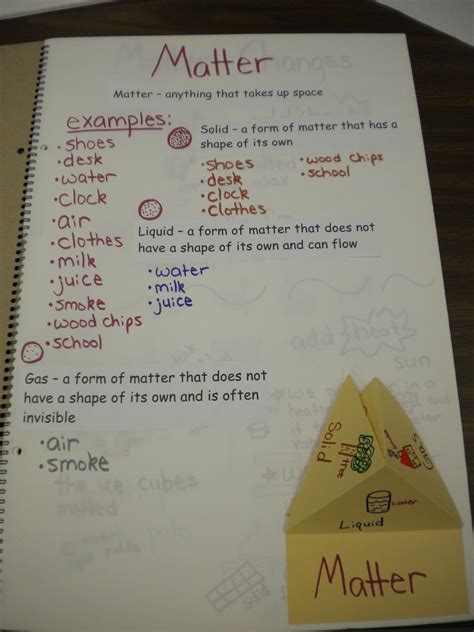 Matter
Matter – anything that takes up space
examples:
• shoes
• desk
• water
• clock
• air
• clothes
• milk
• juice
• smoke
• wood chips
• school
Solid – a form of matter that has a
shape of its own
• shoes
• desk
• clock
• clothes
• wood chips
• school
Liquid – a form of matter that does not
have a shape of its own and can flow
• water
• milk
• juice
Gas – a form of matter that does not
have a shape of its own and is often
invisible
• air
• smoke
Solid
tree
Gas
water
Liquid
Matter
add heat
sun
the ice cubes
melted